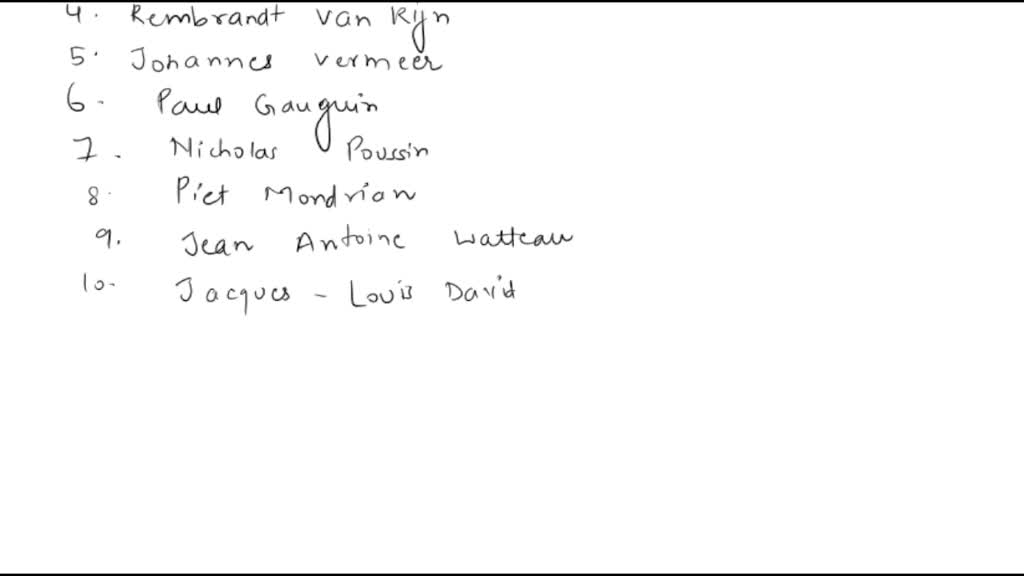 4. Rembrandt van Rijn
5. Johannes Vermeer
6. Paul Gauguin
7. Nicholas Poussin
8. Piet Mondrian
9. Jean Antoine Watteau
10. Jacques - Louis David